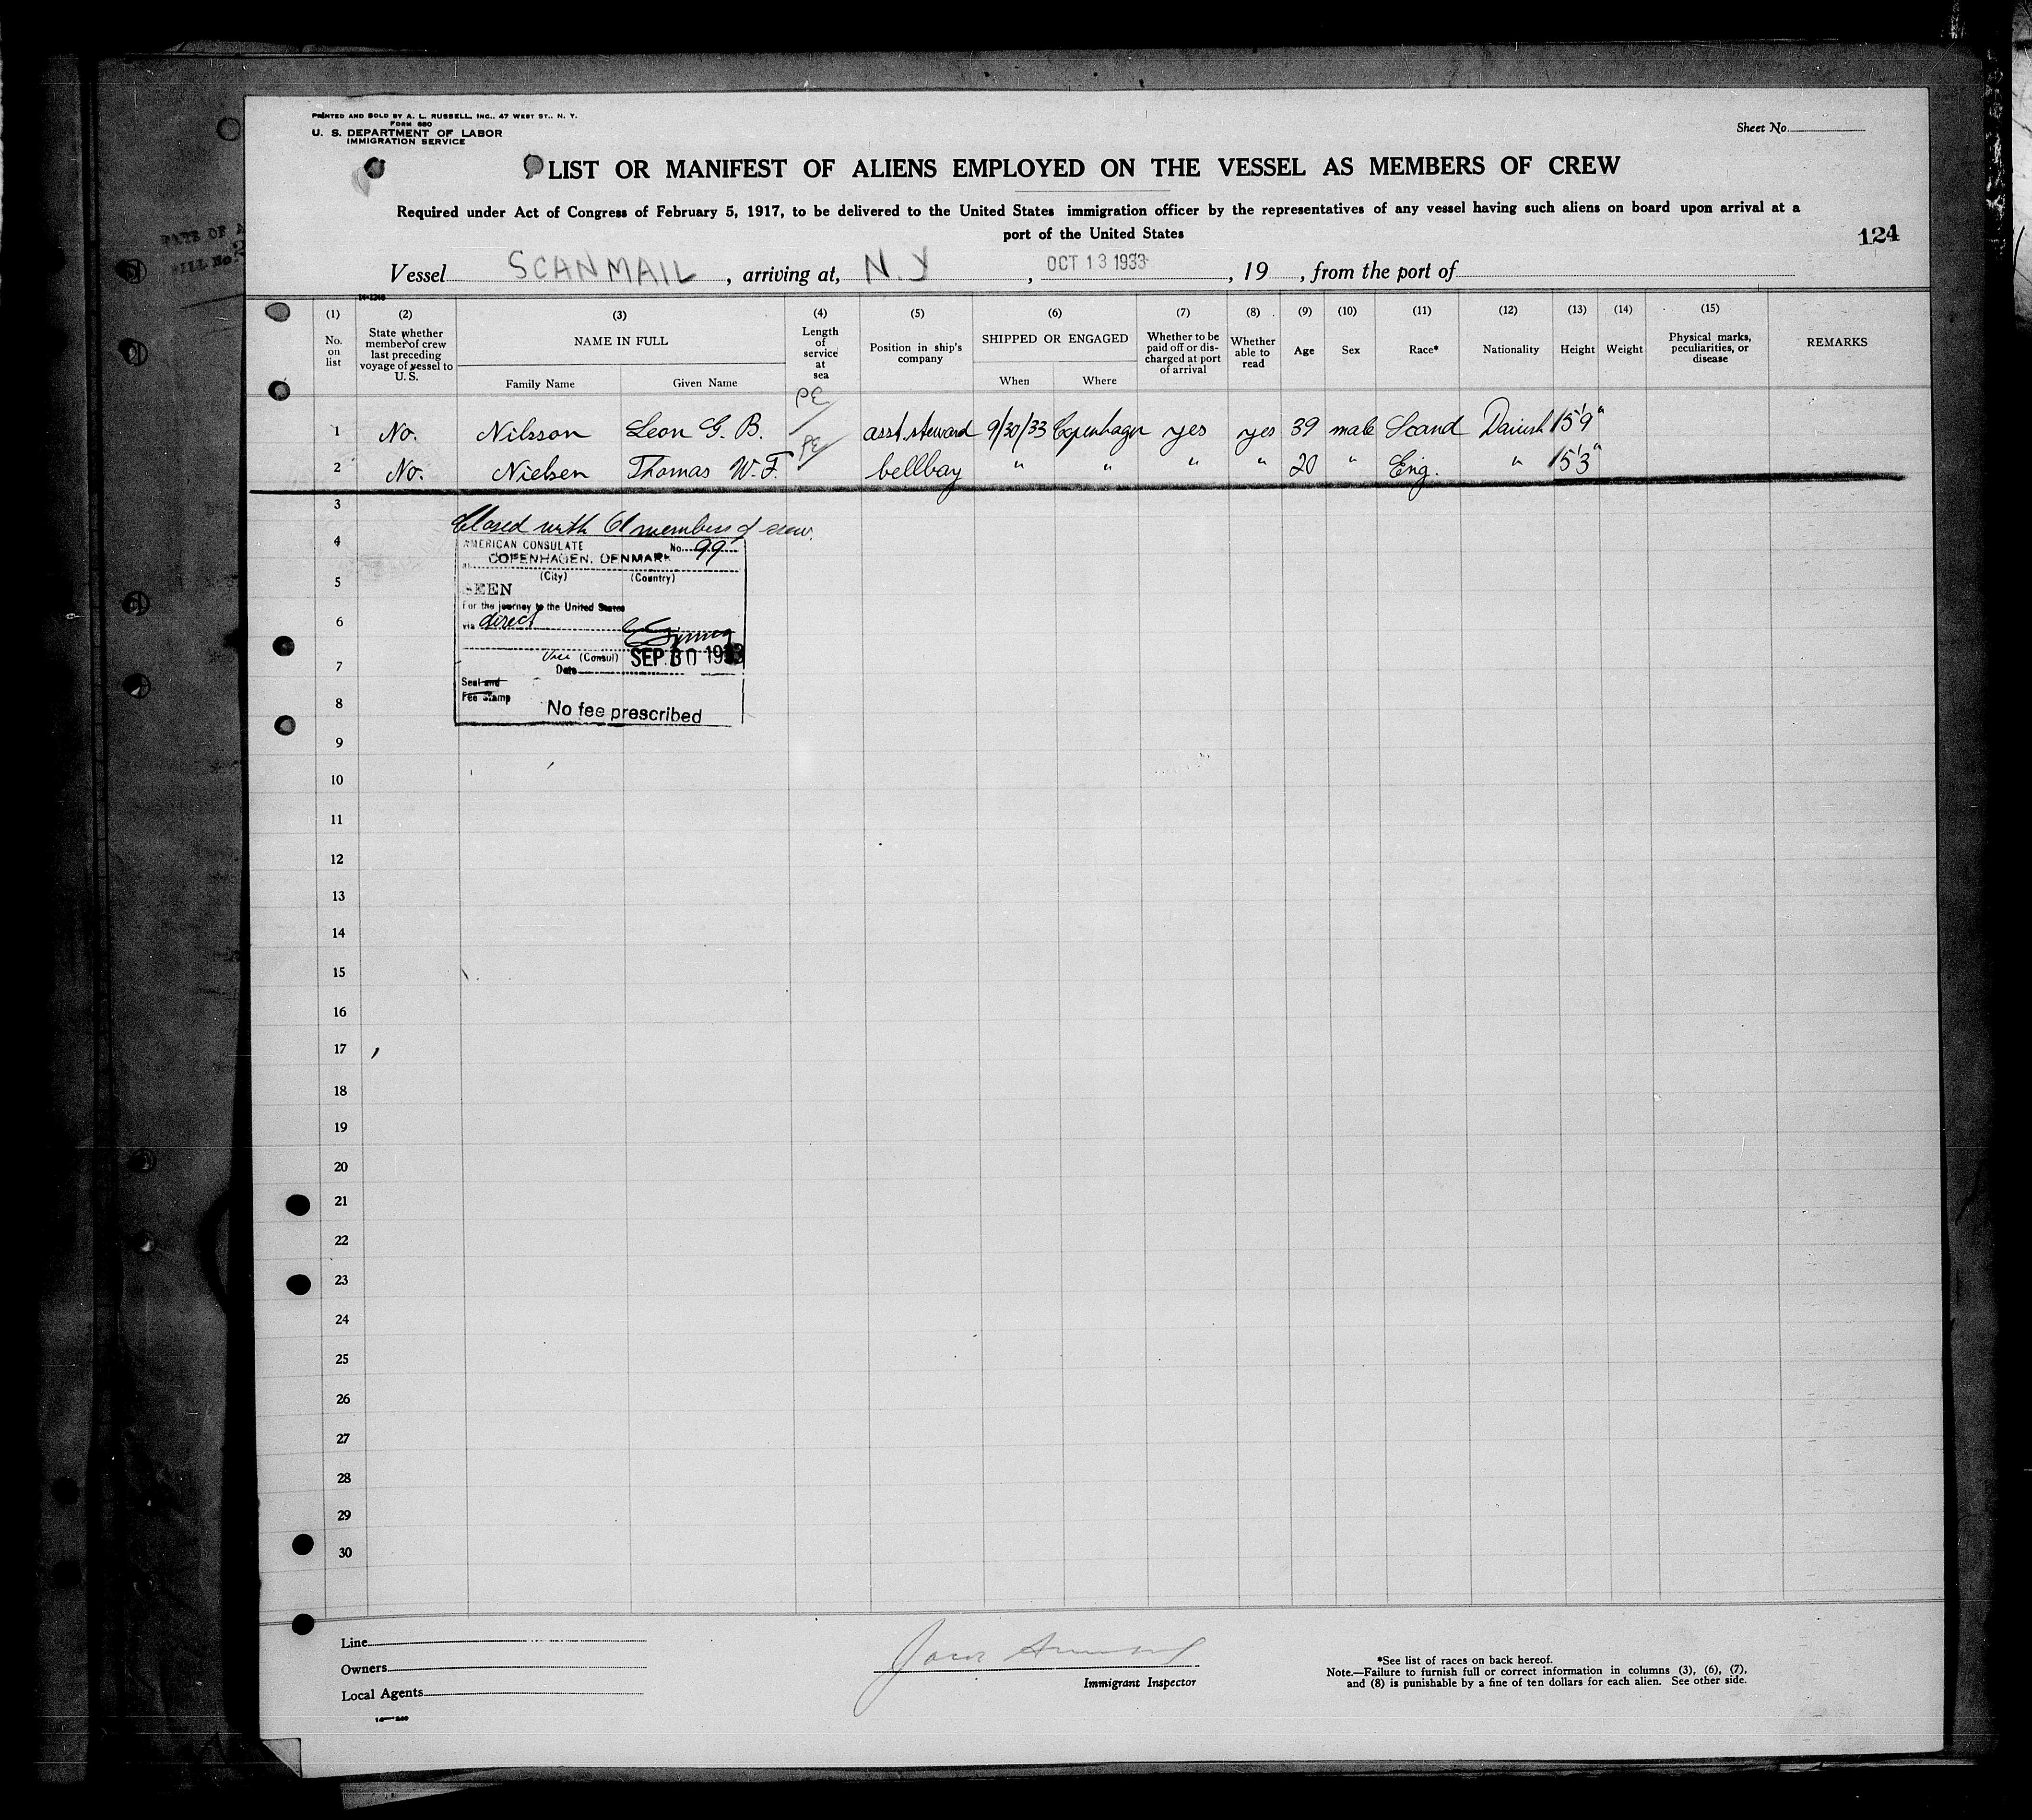 PRINTED AND SOLD BY A. L. RUSSELL, INC., 47 WEST ST., N. Y.
FORM 680
U. S. DEPARTMENT OF LABOR
IMMIGRATION SERVICE
Sheet No.
LIST OR MANIFEST OF ALIENS EMPLOYED ON THE VESSEL AS MEMBERS OF CREW
Required under Act of Congress of February 5, 1917, to be delivered to the United States immigration officer by the representatives of any vessel having such aliens on board upon arrival at a
port of the United States
124
Vessel SCANMAIL, arriving at, N.Y, OCT 13 1933, 19 , from the port of
(1) No. on list
(2) State whether member of crew last preceding voyage of vessel to U. S.
(3) NAME IN FULL
Family Name
Given Name
(4) Length of service at sea
(5) Position in ship's company
(6) SHIPPED OR ENGAGED
When
Where
(7) Whether to be paid off or discharged at port of arrival
(8) Whether able to read
(9) Age
(10) Sex
(11) Race*
(12) Nationality
(13) Height
(14) Weight
(15) Physical marks, peculiarities, or disease
REMARKS
1 No. Nilsson Leon G. B. asst. steward 9/30/33 Copenhagen yes yes 39 male Scand Danish 5'9"
2 No. Nielsen Thomas W. F. bellboy " " " " 20 " Eng. " 5'3"
3
Closed with 61 members of crew.
4
AMERICAN CONSULATE No. 99
at COPENHAGEN, DENMARK
(City) (Country)
5
SEEN
For the journey to the United States
6
via direct
Vice (Consul) SEP 30 1933
7
Date
Seal and
Fee Stamp
8
No fee prescribed
9
10
11
12
13
14
15
16
17
18
19
20
21
22
23
24
25
26
27
28
29
30
Line
Owners
Local Agents
Immigrant Inspector
*See list of races on back hereof.
Note.—Failure to furnish full or correct information in columns (3), (6), (7),
and (8) is punishable by a fine of ten dollars for each alien. See other side.